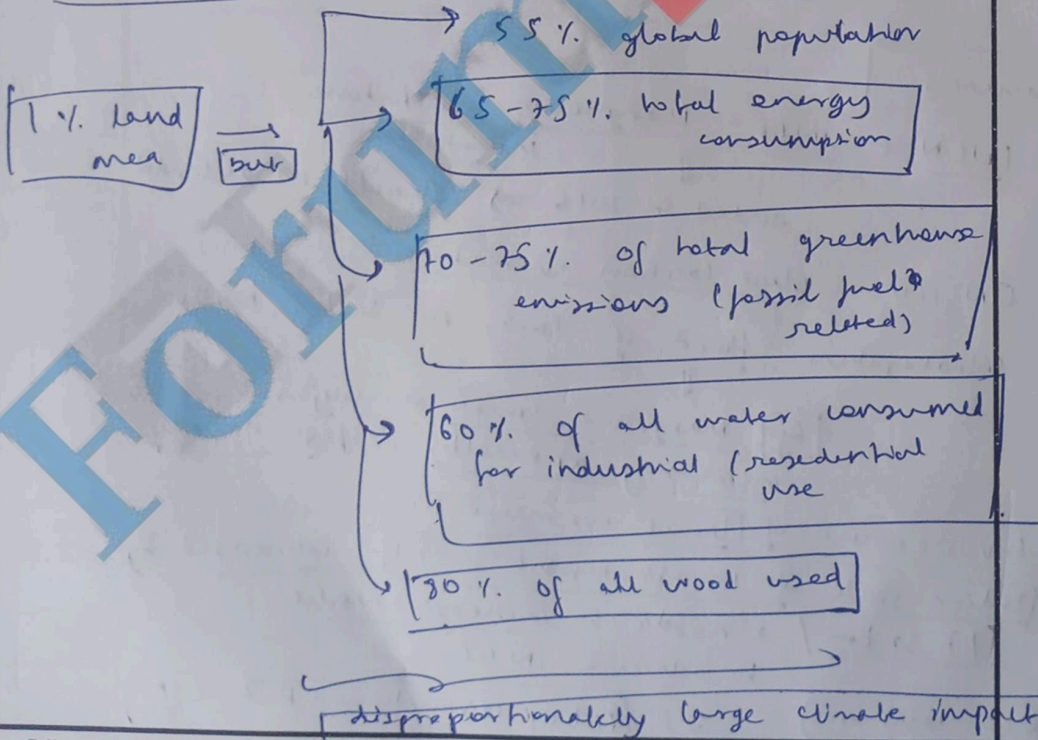 55 %. global population
1 %. land
area
but
65-75 %. total energy
consumption
70-75 %. of total greenhouse
emissions (fossil fuel
related)
60 %. of all water consumed
for industrial (resedential
use
80 %. of all wood used
disproportionakly large climate impact
Forum